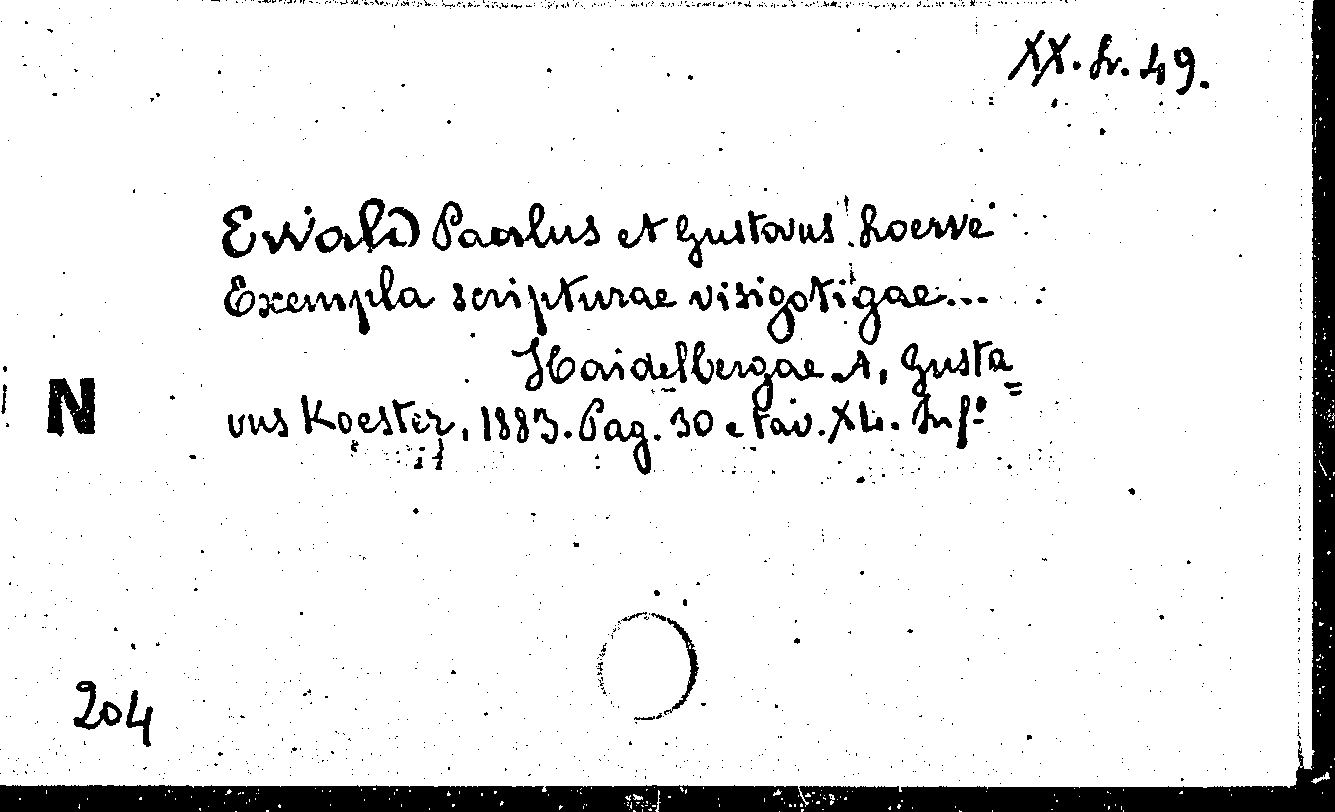 XX. Lr. 49.
Ewald Paulus et Gustavus Loewe
Exempla scripturae visigotigae...
Haidelbergae A, Gusta=
N
vus Koester, 1883. Pag. 30 e tav. XL. Inf°
204